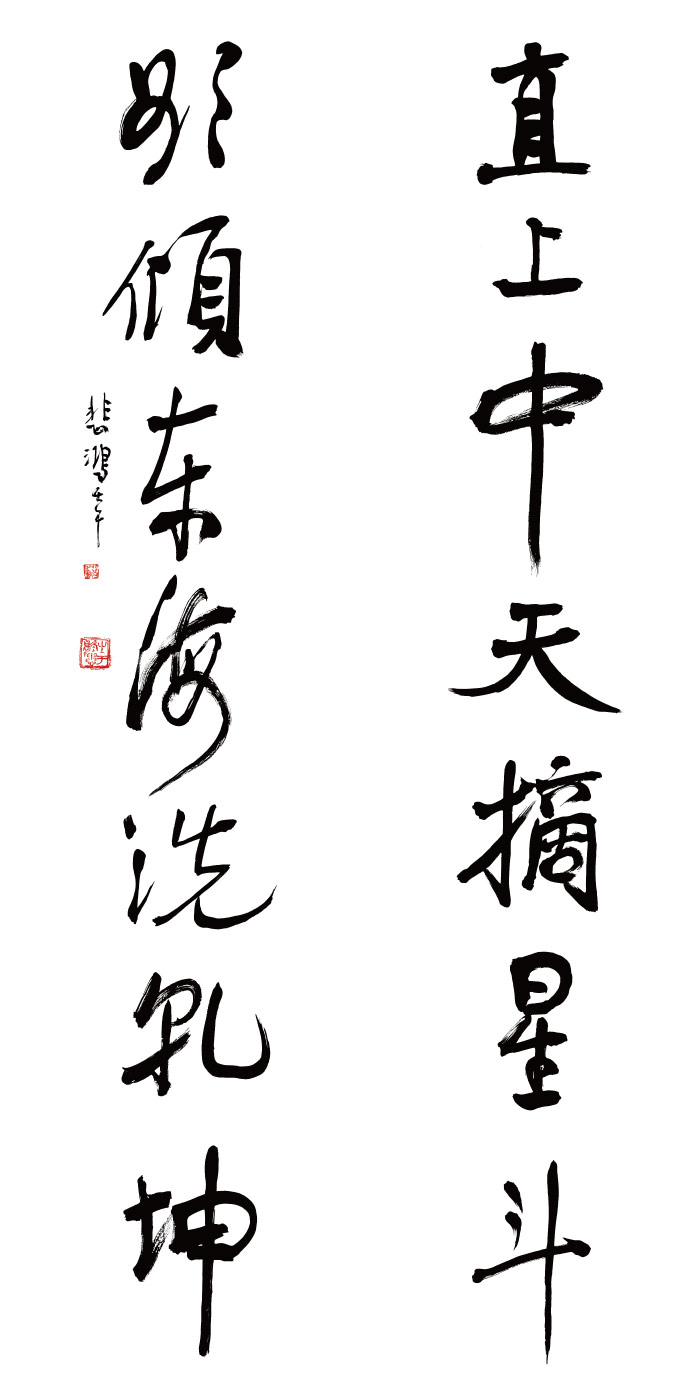 直上中天摘星斗
欲傾东海洗乾坤
悲鴻